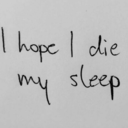 I hope I die
my sleep